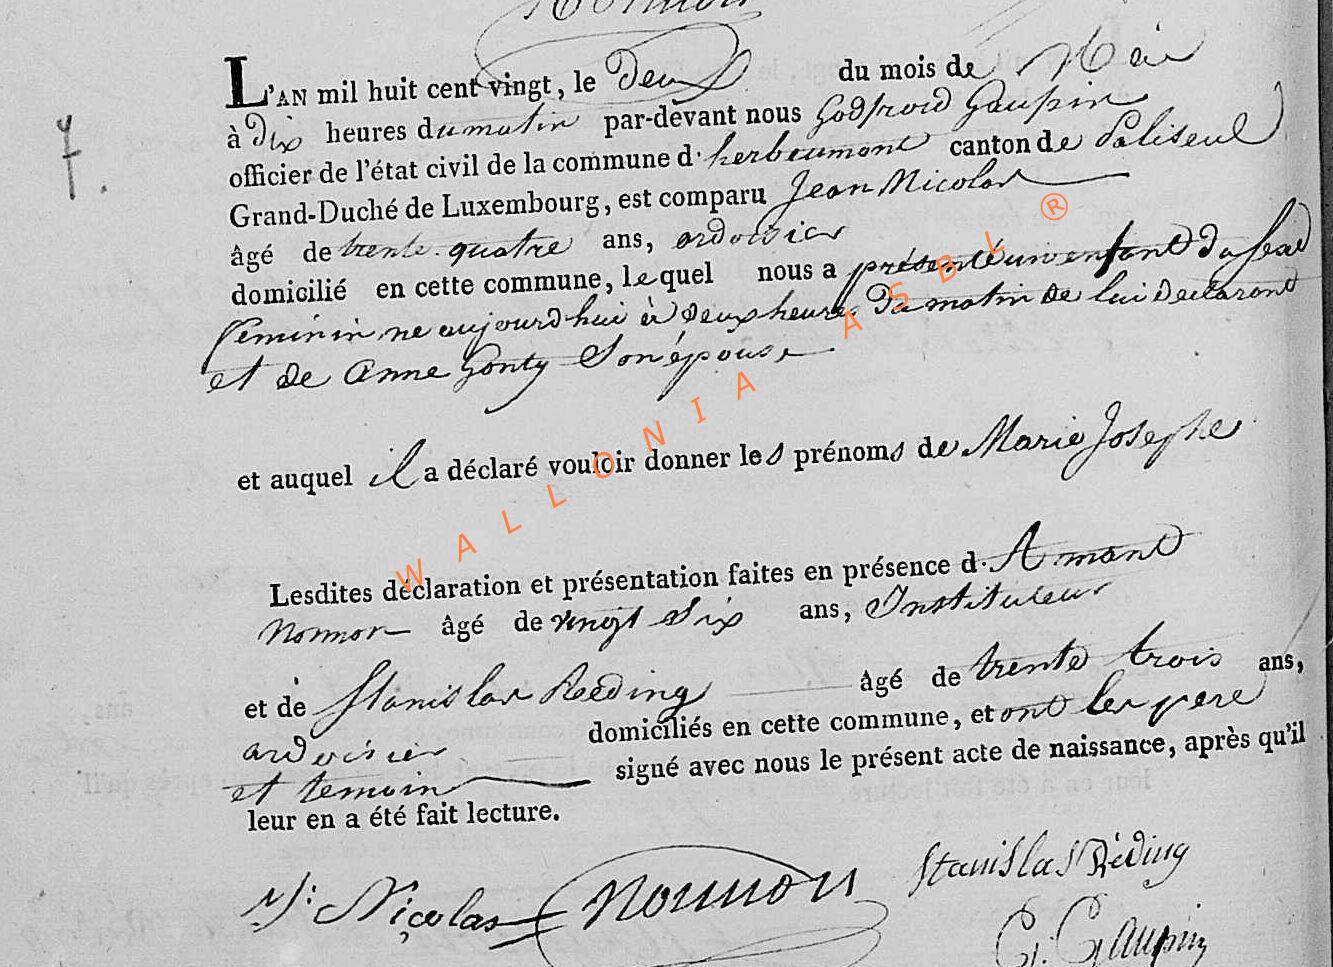 7.
L'AN mil huit cent vingt, le Deux du mois de Mai
à Dix heures du matin par-devant nous Godfroid Gaupin
officier de l'état civil de la commune d'herbeumont canton de Paliseul
Grand-Duché de Luxembourg, est comparu Jean Nicolas
âgé de trente quatre ans, ardoisier
domicilié en cette commune, lequel nous a présenté un enfant du sexe
feminin ne aujourdhui à deux heures du matin de lui Declarant
et de Anne Gonty Son épouse
et auquel il a déclaré vouloir donner les prénoms de Marie Josephe
Lesdites déclaration et présentation faites en présence d'Amand
Nonnon âgé de vingt Six ans, Instituteur
et de Stanislas Reding âgé de trente trois ans,
ardoisier domiciliés en cette commune, et ont les pere
et temoin signé avec nous le présent acte de naissance, après qu'il
leur en a été fait lecture.
Nicolas Nonnon Stanislas Réding
G. Gaupin
WALLONIA ASBL ®